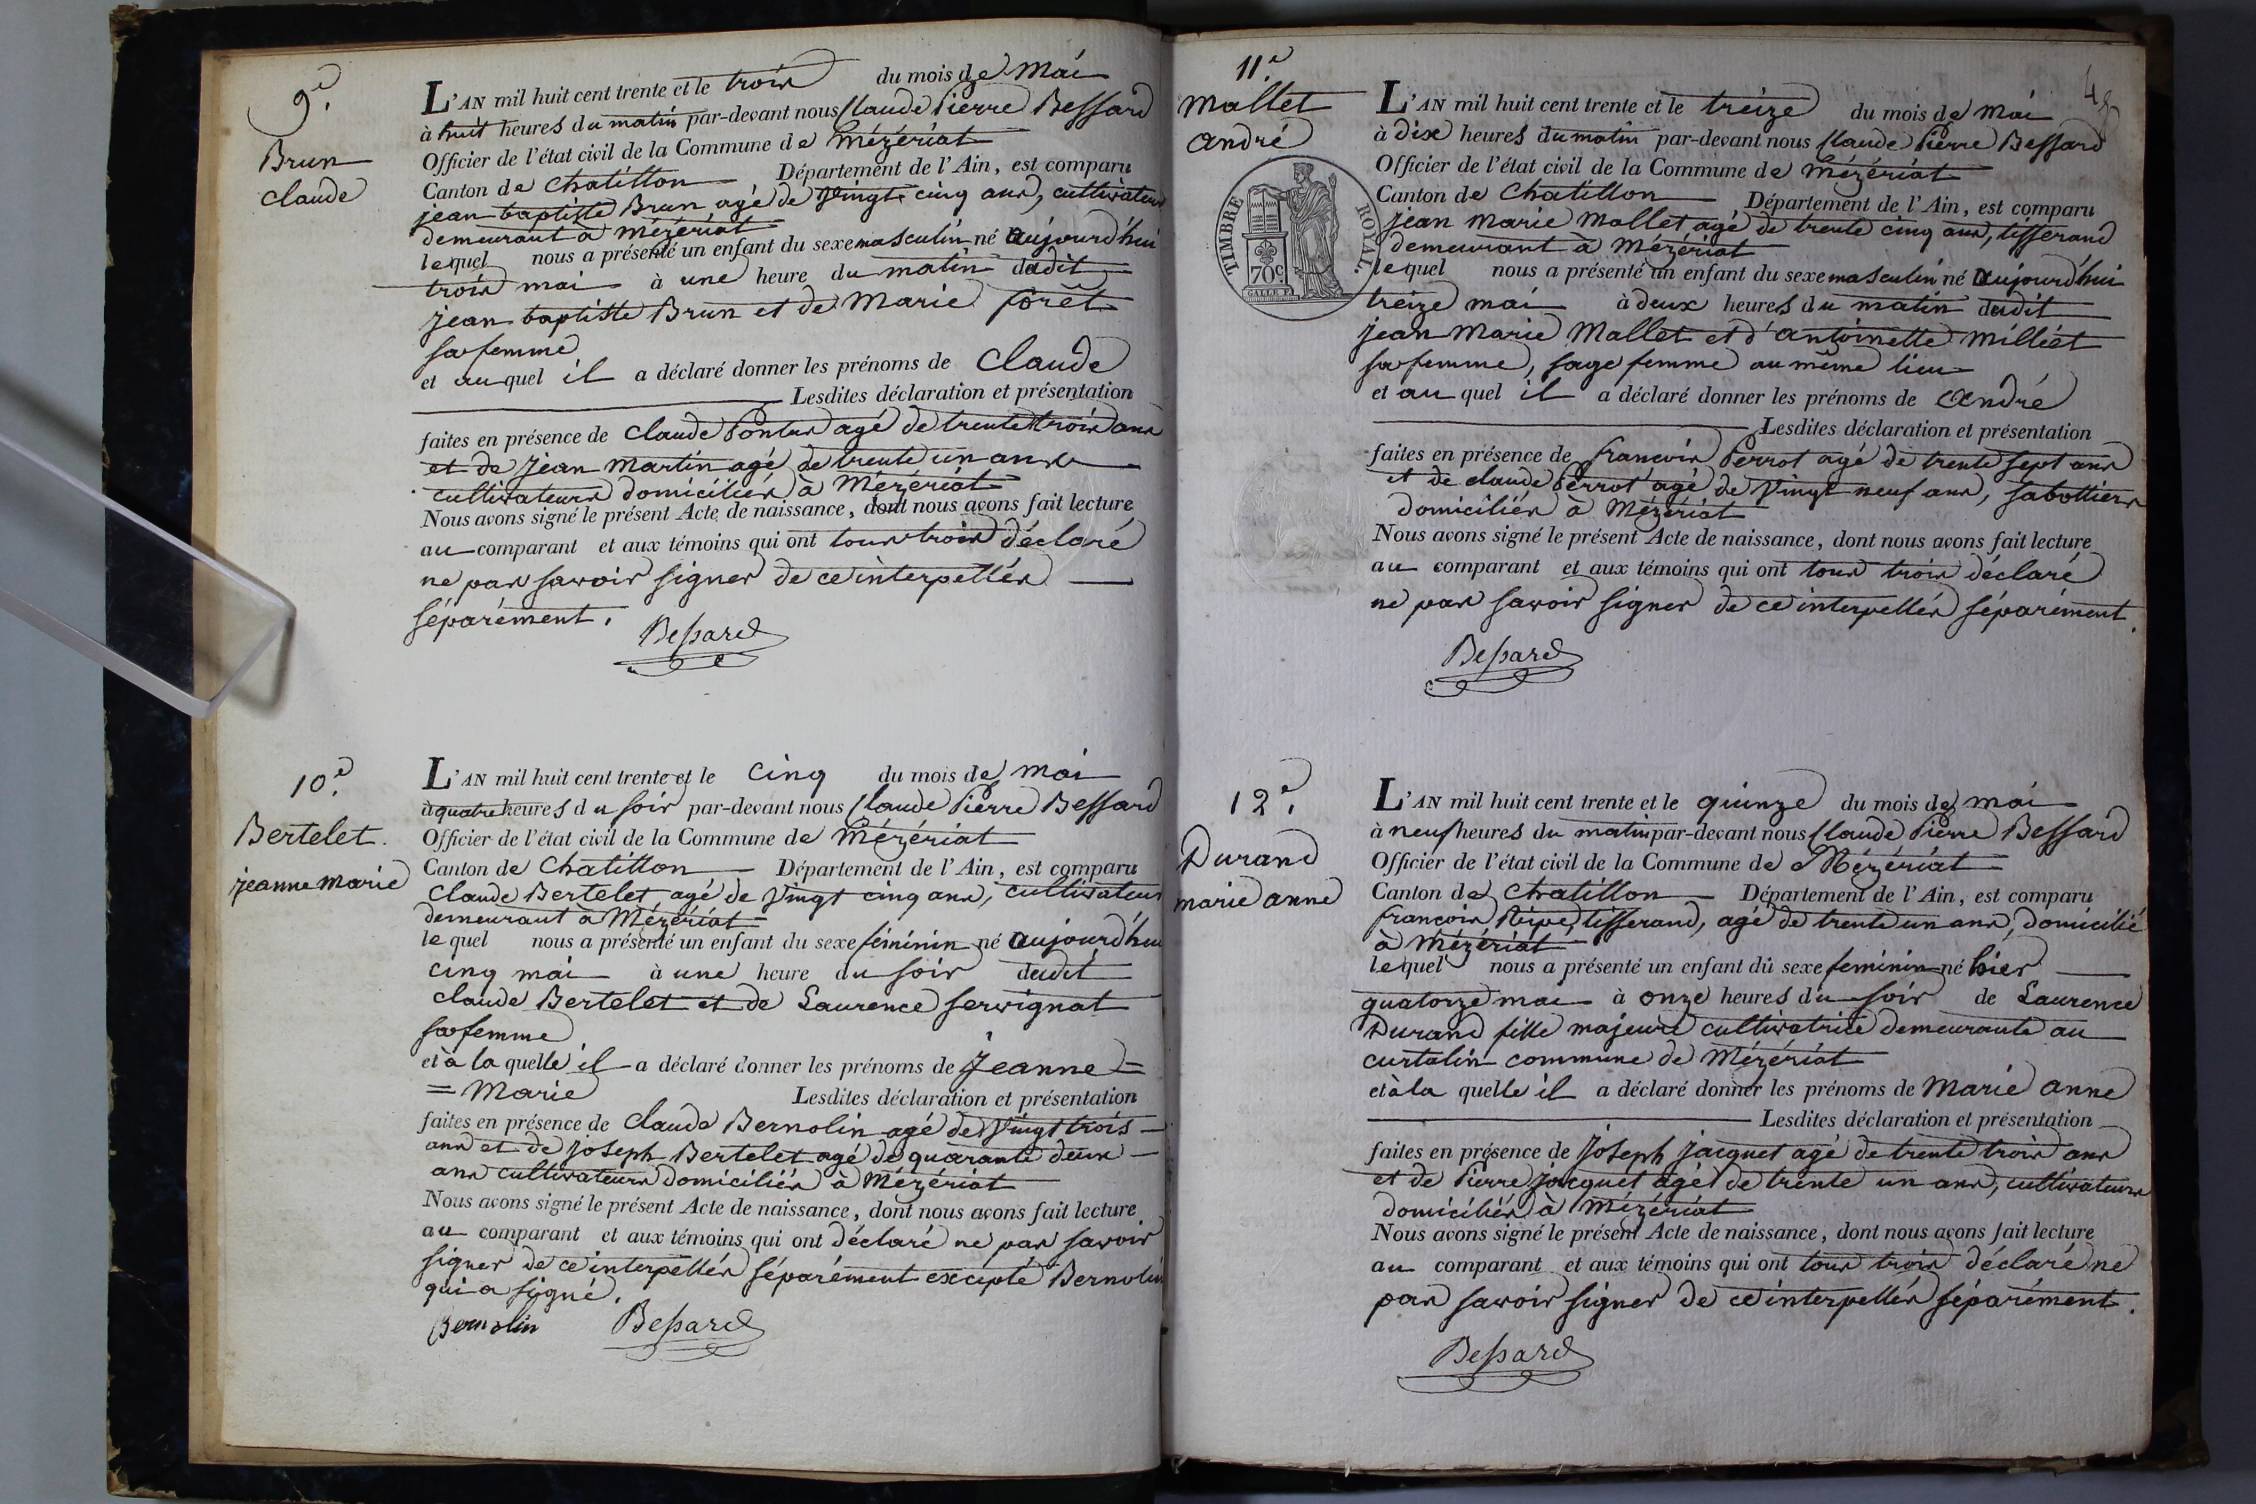 9e.
Brun
claude
L'AN mil huit cent trente et le trois du mois de mai
à huit heures du matin par-devant nous Claude Pierre Bessard
Officier de l'état civil de la Commune de Mézériat
Canton de Chatillon Département de l'Ain, est comparu
jean baptiste Brun agé de vingt cinq ans, cultivateur
demeurant à Mézériat
lequel nous a présenté un enfant du sexe masculin né aujourd'hui
trois mai à une heure du matin dudit
jean baptiste Brun et de Marie forêt
sa femme
et auquel il a déclaré donner les prénoms de Claude
Lesdites déclaration et présentation
faites en présence de Claude Pontus agé de trente trois ans
et de jean Martin agé de trente un ans
cultivateurs domiciliés à Mézériat
Nous avons signé le présent Acte de naissance, dont nous avons fait lecture
au comparant et aux témoins qui ont tous trois déclaré
ne pas savoir signer de ce interpellés
séparément.
Bessard
10e.
Bertelet.
jeanne marie
L'AN mil huit cent trente et le cinq du mois de mai
à quatre heures du soir par-devant nous Claude Pierre Bessard
Officier de l'état civil de la Commune de Mézériat
Canton de Chatillon Département de l'Ain, est comparu
Claude Bertelet, agé de vingt cinq ans, cultivateur
demeurant à Mézériat
lequel nous a présenté un enfant du sexe féminin né aujourd'hui
cinq mai à une heure du soir dudit
claude Bertelet et de Laurence servignat
sa femme
et à la quelle il a déclaré donner les prénoms de Jeanne =
= Marie Lesdites déclaration et présentation
faites en présence de Claude Bernolin agé de vingt trois
ans et de joseph Bertelet agé de quarante deux
ans cultivateurs domiciliés à Mézériat
Nous avons signé le présent Acte de naissance, dont nous avons fait lecture
au comparant et aux témoins qui ont déclaré ne pas savoir
signer de ce interpellés séparément excepté Bernolin
qui a signé.
Bernolin Bessard
11e.
Mallet
andré
TIMBRE ROYAL.
70c.
L'AN mil huit cent trente et le treize du mois de mai
à dix heures du matin par-devant nous Claude Pierre Bessard
Officier de l'état civil de la Commune de Mézériat
Canton de Chatillon Département de l'Ain, est comparu
jean marie Mallet, agé de trente cinq ans, tisserand
demeurant à Mézériat
lequel nous a présenté un enfant du sexe masculin né aujourd'hui
treize mai à deux heures du matin dudit
jean Marie Mallet et d'antoinette milliét
sa femme, sage femme au même lieu
et au quel il a déclaré donner les prénoms de André
Lesdites déclaration et présentation
faites en présence de françois Perrot agé de trente sept ans
et de claude Perrot agé de vingt neuf ans, sabottiers
domiciliés à Mézériat
Nous avons signé le présent Acte de naissance, dont nous avons fait lecture
au comparant et aux témoins qui ont tous trois déclaré
ne pas savoir signer de ce interpellés séparément.
Bessard
12e.
Durand
marie anne
L'AN mil huit cent trente et le quinze du mois de mai
à neuf heures du matin par-devant nous Claude Pierre Bessard
Officier de l'état civil de la Commune de Mézériat
Canton de Chatillon Département de l'Ain, est comparu
françois tisserand, agé de trente un ans, domicilié
à Mézériat
lequel nous a présenté un enfant du sexe feminin né hier
quatorze mai à onze heures du soir de Laurence
Durand fille majeure cultivatrice demeurante au
curtalin commune de Mézériat
et à la quelle il a déclaré donner les prénoms de Marie anne
Lesdites déclaration et présentation
faites en présence de joseph jacquet agé de trente trois ans
et de Pierre jacquet agé de trente un ans, cultivateurs
domiciliés à Mézériat
Nous avons signé le présent Acte de naissance, dont nous avons fait lecture
au comparant et aux témoins qui ont tous trois déclaré ne
pas savoir signer de ce interpellés séparément.
Bessard